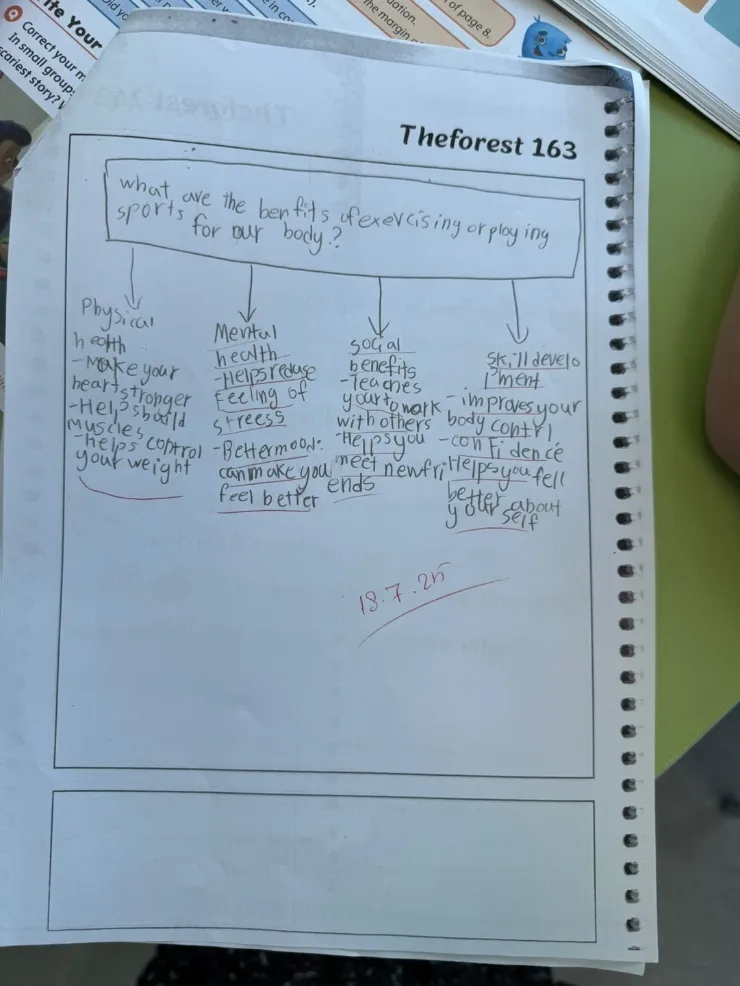 ite Your
Correct your m
In small group
scariest story?
Did you
e in co
).
uation.
the margin
of page 8.
Theforest 163
what are the benfits of exercising or playing
sports for our body?
Physical
health
-Make your
heart stronger
-Helps build
muscles
-helps control
your weight
Mental
health
-Helps reduse
Feeling of
streess
-Bettermood:
can make you
feel better
social
benefits
-Teaches
your to work
with others
-Helps you
meet newfri
ends
skill develo
pment
-improves your
body contrl
-confidence
Helps you fell
better about
your self
18.7.25